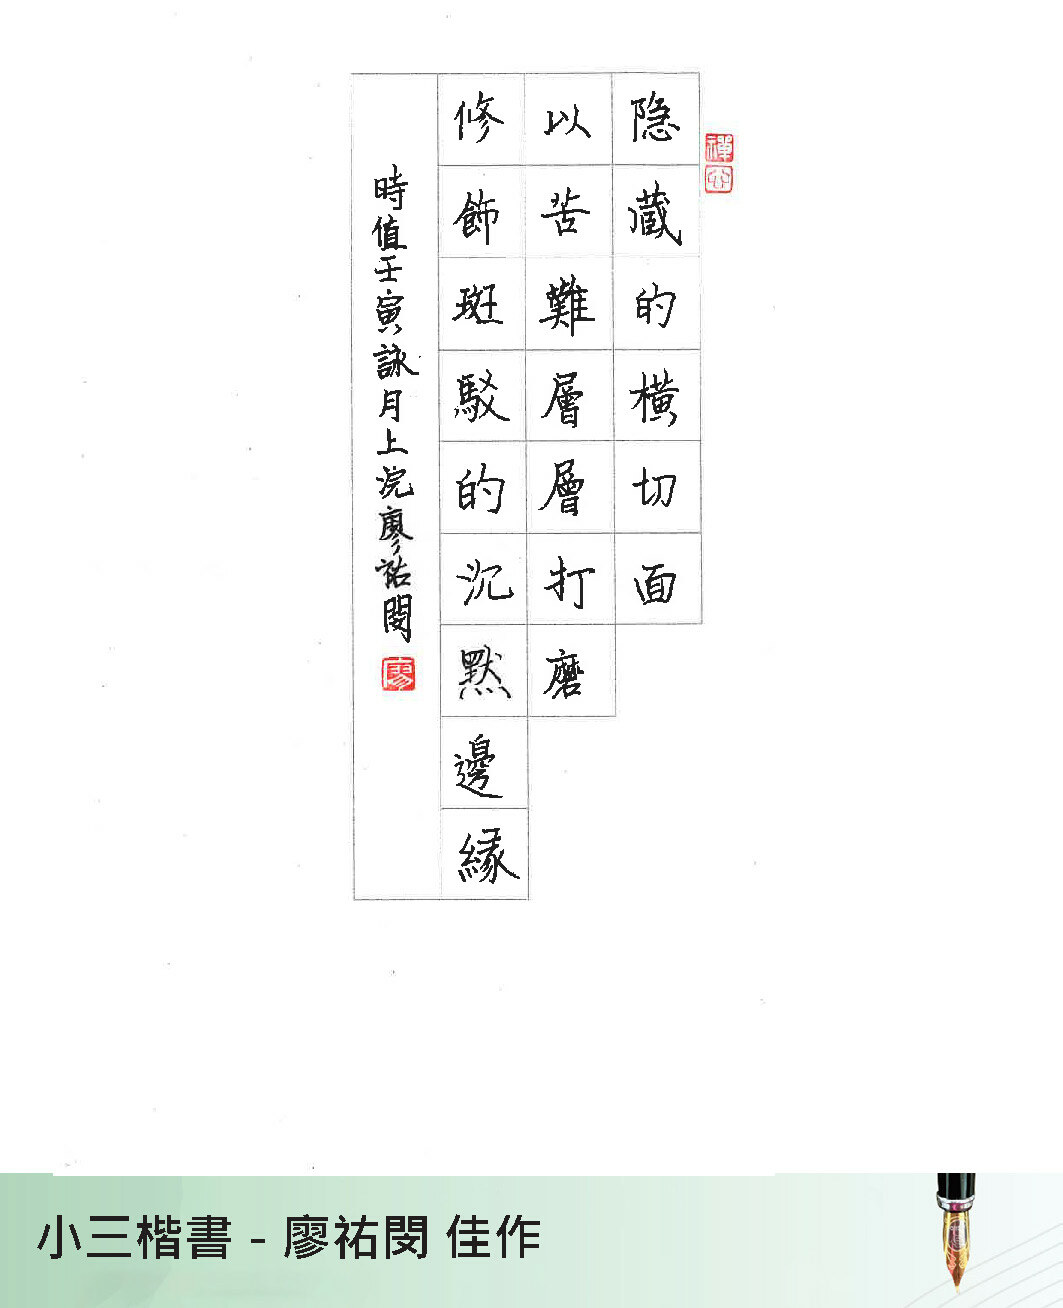 隐藏的橫切面
以苦難層層打磨
修飾斑駁的沉默邊緣
時值壬寅詠月上浣廖祐閔
禪心
廖
小三楷書 - 廖祐閔 佳作